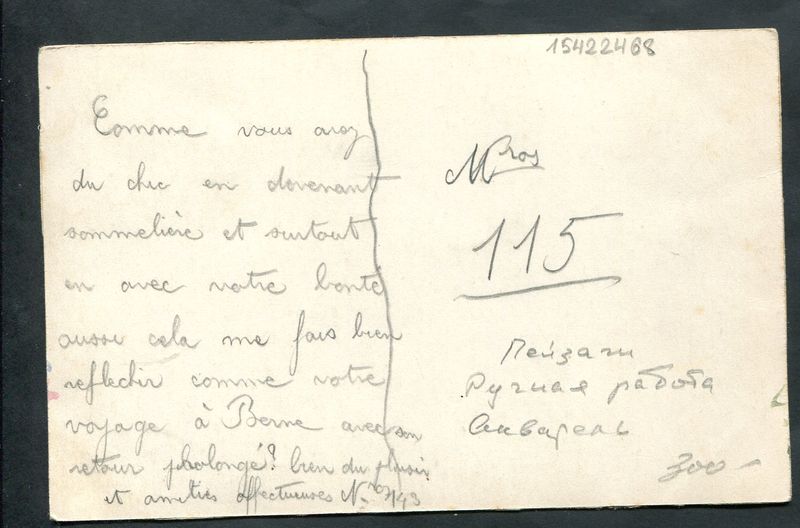 15422468
Comme vous avez
du chic en devenant
sommelière et surtout
en avec votre bonté
aussi cela me fais bien
reflechir comme votre
voyage à Berne avec son
retour pholongé? bien du plaisir
et amitiés affectueuses Nros 143
Mros
115
Пейзажи
Ручная работа
Акварель
300 -